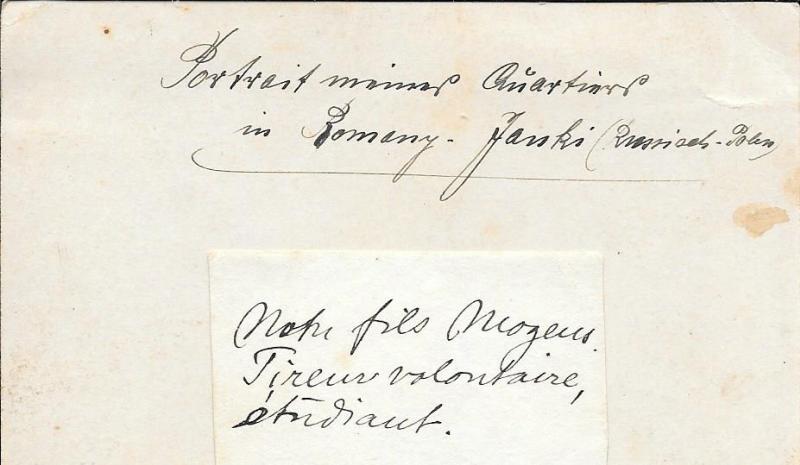 Portrait meines Quartiers
in Romany-Janki (Russisch-Polen)
Notre fils Mogens.
Tireur volontaire,
étudiant.